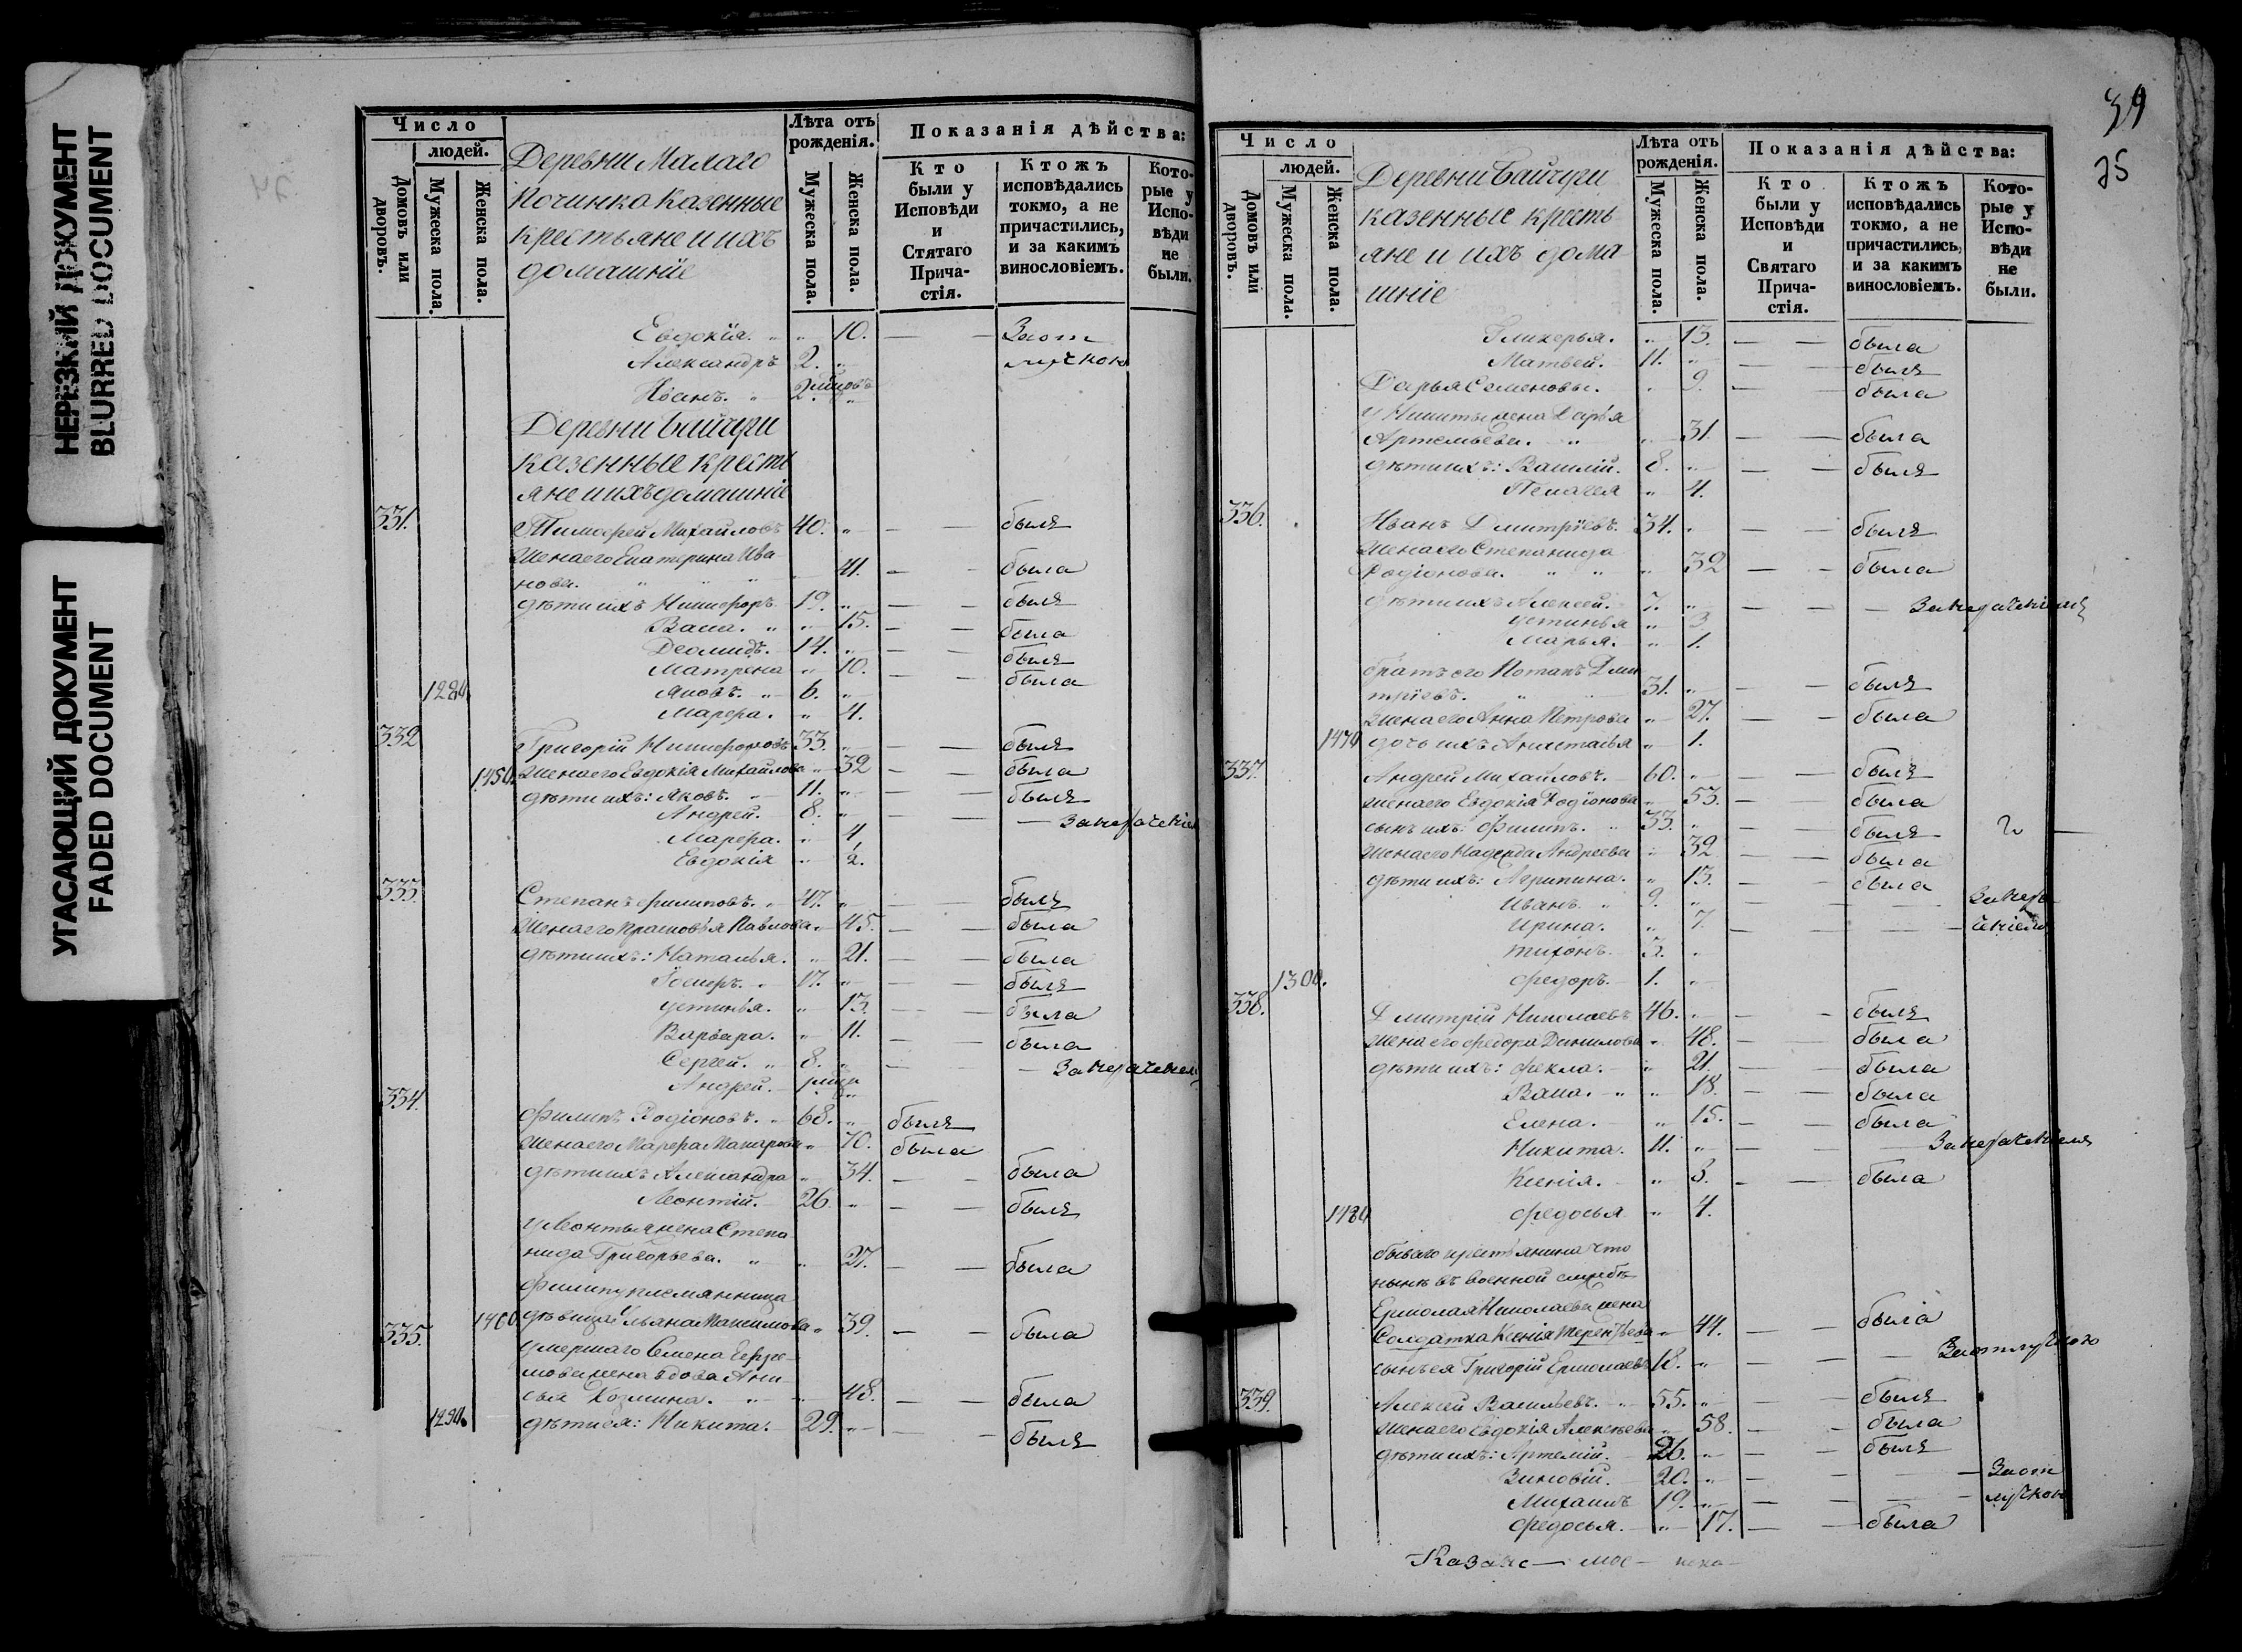 НЕРЕЗКИЙ ДОКУМЕНТ
BLURRED DOCUMENT
УГАСАЮЩИЙ ДОКУМЕНТ
FADED DOCUMENT
Число
людей.
Домовъ или дворовъ.
Мужеска пола.
Женска пола.
Деревни Малаго
Починка казенные
крестьяне и ихъ
домашніе
Лѣта отъ рожденія.
Мужеска пола.
Женска пола.
Показанія дѣйства:
Кто были у Исповѣди и Стятаго Прича-стія.
Ктожъ исповѣдались токмо, а не причастились, и за какимъ винословіемъ.
Кото-рые у Испо-вѣди не были.
Евдокія. " " 10. — — За от
Александръ 2. " лучкою
Иванъ. "
Деревни Вайчуги
казенные кресть
яне и ихъ домашніе
331. Тимофей Михайловъ 40. " — — былъ
жена его Екатерина Ива
нова. " " " 41. — — была
дѣти ихъ Никифоръ 19. " — — былъ
Васа. " " 15. — — была
Деомидъ. 14. " — — былъ
Матрена " 10. — — была
1284 Яковъ. " 6. "
Марфа. " 4.
332 Григорій Никифоровъ 33. " — — былъ
1450. жена его Евдокія Михайлова " 32 — — была
дѣти ихъ: Яковъ. " 11. " — — былъ
Андрей. 8. " — — — За нерачѣніем
Марфа. " 4
Евдокія " ½.
333. Степанъ Филиповъ. " 47. " — — былъ
жена его Прасковья Павлова " 45. — — была
дѣти ихъ: Наталья. " 21. — — была
Іосифъ. " 17. " — — былъ
Устинья. " 13. — — была
Варвара. " 11. — — была
Сергей. " 8. " — — — За нерачѣніем
Андрей.
334. Филипъ Родіоновъ. " 68. " былъ
жена его Марфа Макарова " 70. была
дѣти ихъ Александра " 34. — — была
Леонтій. 26. " — — былъ
у Леонтья жена Степа
нида Григорьева. " " 27. — — была
Филипу племянница
1460 дѣвица Ульяна Максимова " 39. — — была
335. умершаго Семена Ефре
мова жена вдова Ани
сья Козмина. " " 48. — — была
1290. дѣти ея: Никита. 29. " — — былъ
39
35
Число
людей.
Домовъ или дворовъ.
Мужеска пола.
Женска пола.
Деревни Вайчуги
казенные кресть
яне и ихъ дома
шніе
Лѣта отъ рожденія.
Мужеска пола.
Женска пола.
Показанія дѣйства:
Кто были у Исповѣди и Святаго Прича-стія.
Ктожъ исповѣдались токмо, а не причастились, и за какимъ винословіемъ.
Кото-рые у Испо-вѣди не были.
Гликерья. " 13. — — была
Матвей. 11. " — — былъ
Дарья Семеновы. " 9. — — была
у Никиты жена Дарья
Артемьева. " " 31. — — была
дѣти ихъ: Василій. 8. " — — былъ
Пелагея " 4.
336. Иванъ Дмитріевъ. 34. " — — былъ
жена его Степанида
Родіонова. " " " 32 — — была
дѣти ихъ Алексей. 7. " — — — За нерачѣніемъ
Устинья " 3
Марья. " 1.
братъ его Потапъ Дми
тріевъ. " 31. " — — былъ
жена его Анна Петрова " 27. — — была
1470 дочь ихъ Анистасья " 1.
337. Андрей Михайловъ. 60. " — — былъ
жена его Евдокія Родіонова " 53. — — была
сынъ ихъ: Филипъ. " 33. " — — былъ
жена его Надежда Андреева " 32 — — была
дѣти ихъ: Агрипина. " 13. — — была
Иванъ. " 9. " — — — За нера
Ирина. " 7. — — — чѣніем
Тихонъ. 3. "
1300. Федоръ. 1. "
338. Дмитрій Николаевъ 46. " — — былъ
жена его Федора Данилова " 48. — — была
дѣти ихъ: Фекла. " 21. — — была
Васа. " " 18. — — была
Елена. " 15. — — была
Никита. 11. " — — — За нерачѣніемъ
Ксенія. " 8. — — была
1480 Федосья " 4.
бывшаго крестьянина что
нынѣ въ военной службѣ
Ермолая Николаева жена
Солдатка Ксенія Терентьева " 44. — — была
сынъ ея Григорій Ермолаевъ 18. " — — — За отлучкою
339. Алексей Васильевъ. " 55. " — — былъ
жена его Евдокія Алексѣева " 58. — — была
дѣти ихъ: Артемій. 26. " — — былъ
Зиновій. 20. " — — — За от
Михаилъ 19. " — — — лучкою
Федосья. " 17. — — была